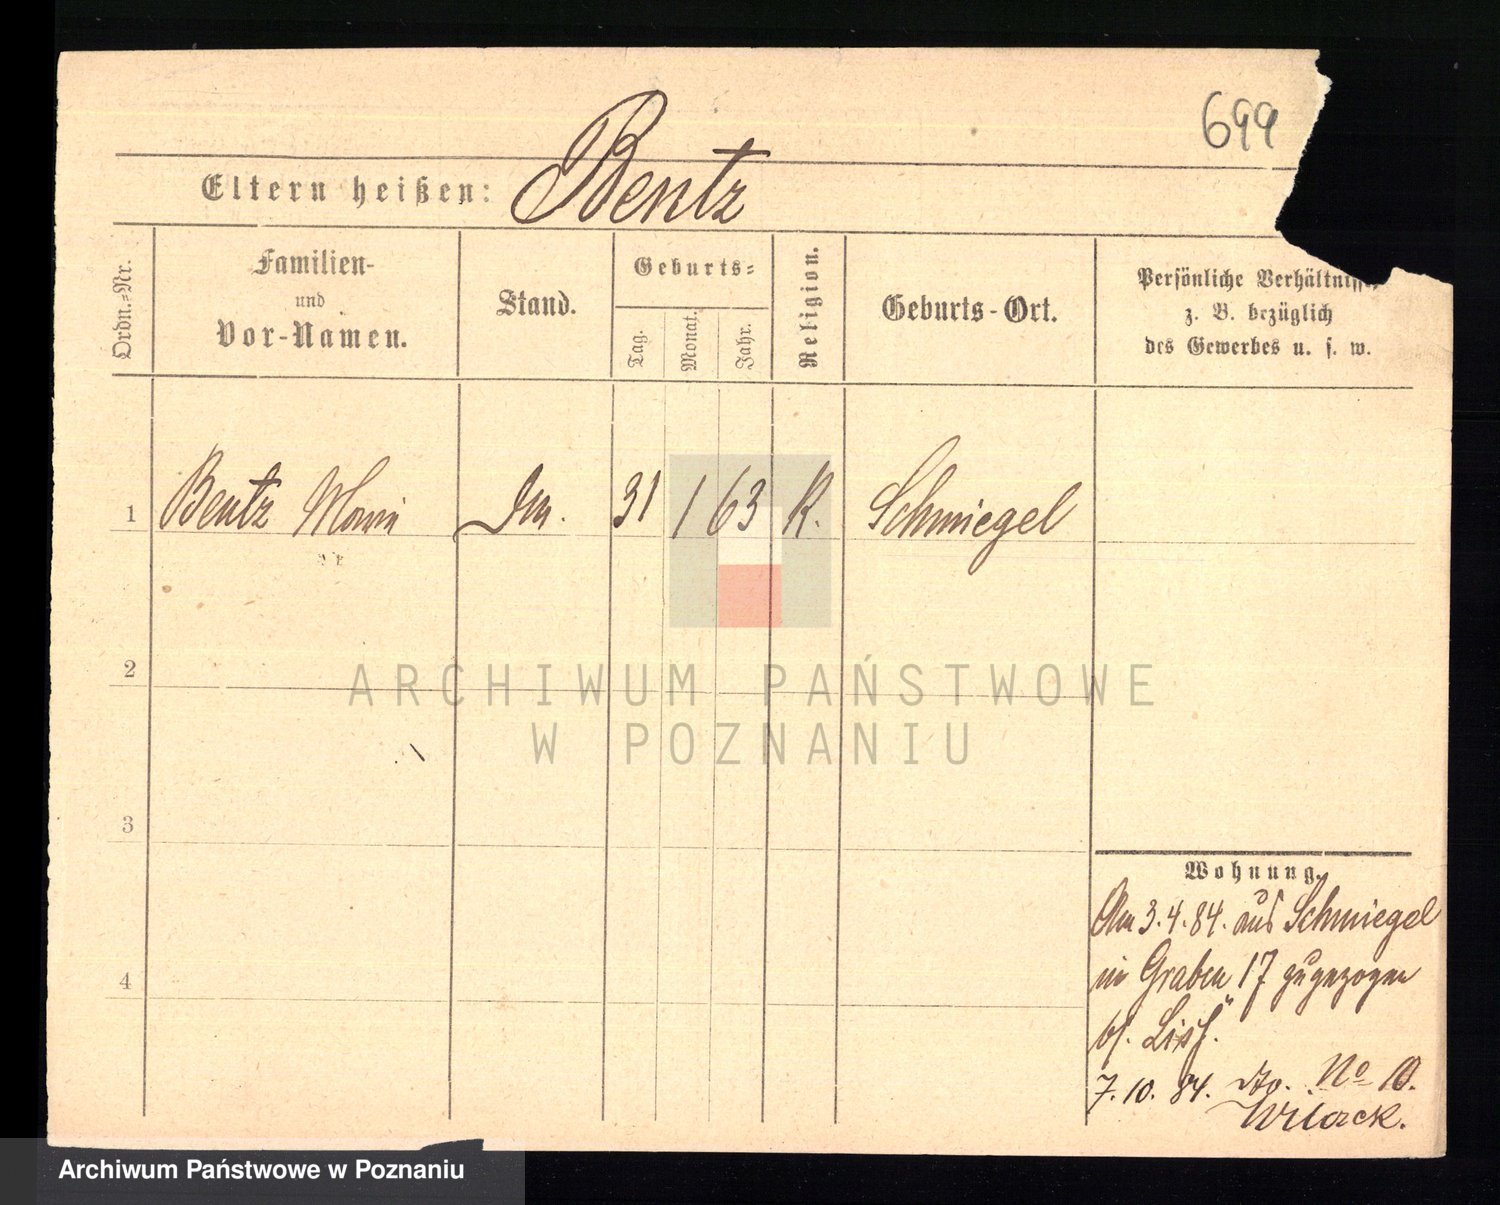 699
Eltern heißen: Bentz
Ordn.-Nr.
Familien-
und
Vor-Namen.
Stand.
Geburts-
Tag.
Monat.
Jahr.
Religion.
Geburts-Ort.
Persönliche Verhältnisse
z. B. bezüglich
des Gewerbes u. s. w.
1 Bentz Maria 31 1 63 K. Schmiegel
2
3
4
ARCHIWUM PAŃSTWOWE
W POZNANIU
Wohnung.
Am 3.4.84. aus Schmiegel
in Graben 17 zugezogen
7.10.84. dto. No
Archiwum Państwowe w Poznaniu